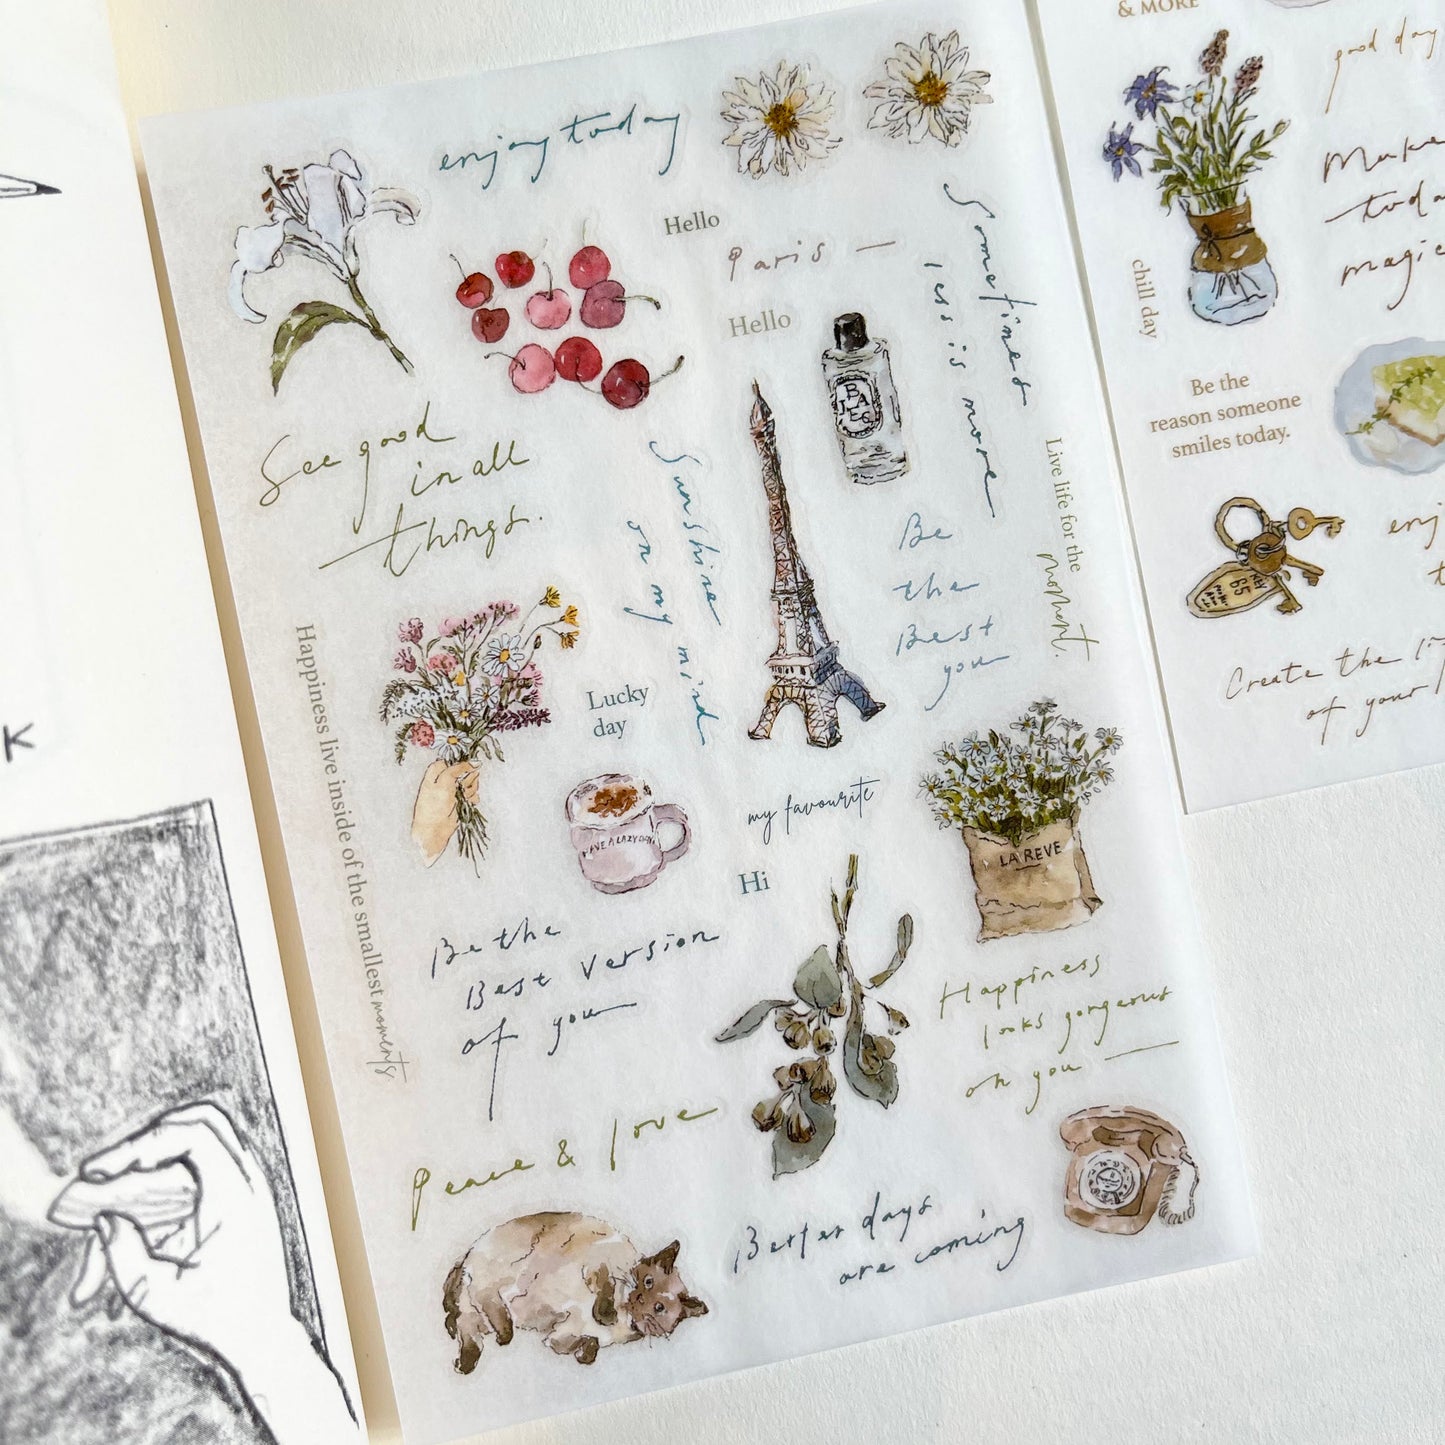 enjoy today
Hello
Paris —
Hello
Sometimes
less is more
BAIES
See good
in all
things.
Sunshine
on my mind
Be
the
Best
you
Live life for the
moment.
Happiness live inside of the smallest moments
Lucky
day
HAVE A LAZY DAY
my favourite
Hi
LA REVE
Be the
Best Version
of you
Happiness
looks gorgeous
on you —
Peace & love
Better days
are coming
K
& MORE
good day
Make
today
magic
chill day
Be the
reason someone
smiles today.
KEY
65
enj
t
Create the li
of your